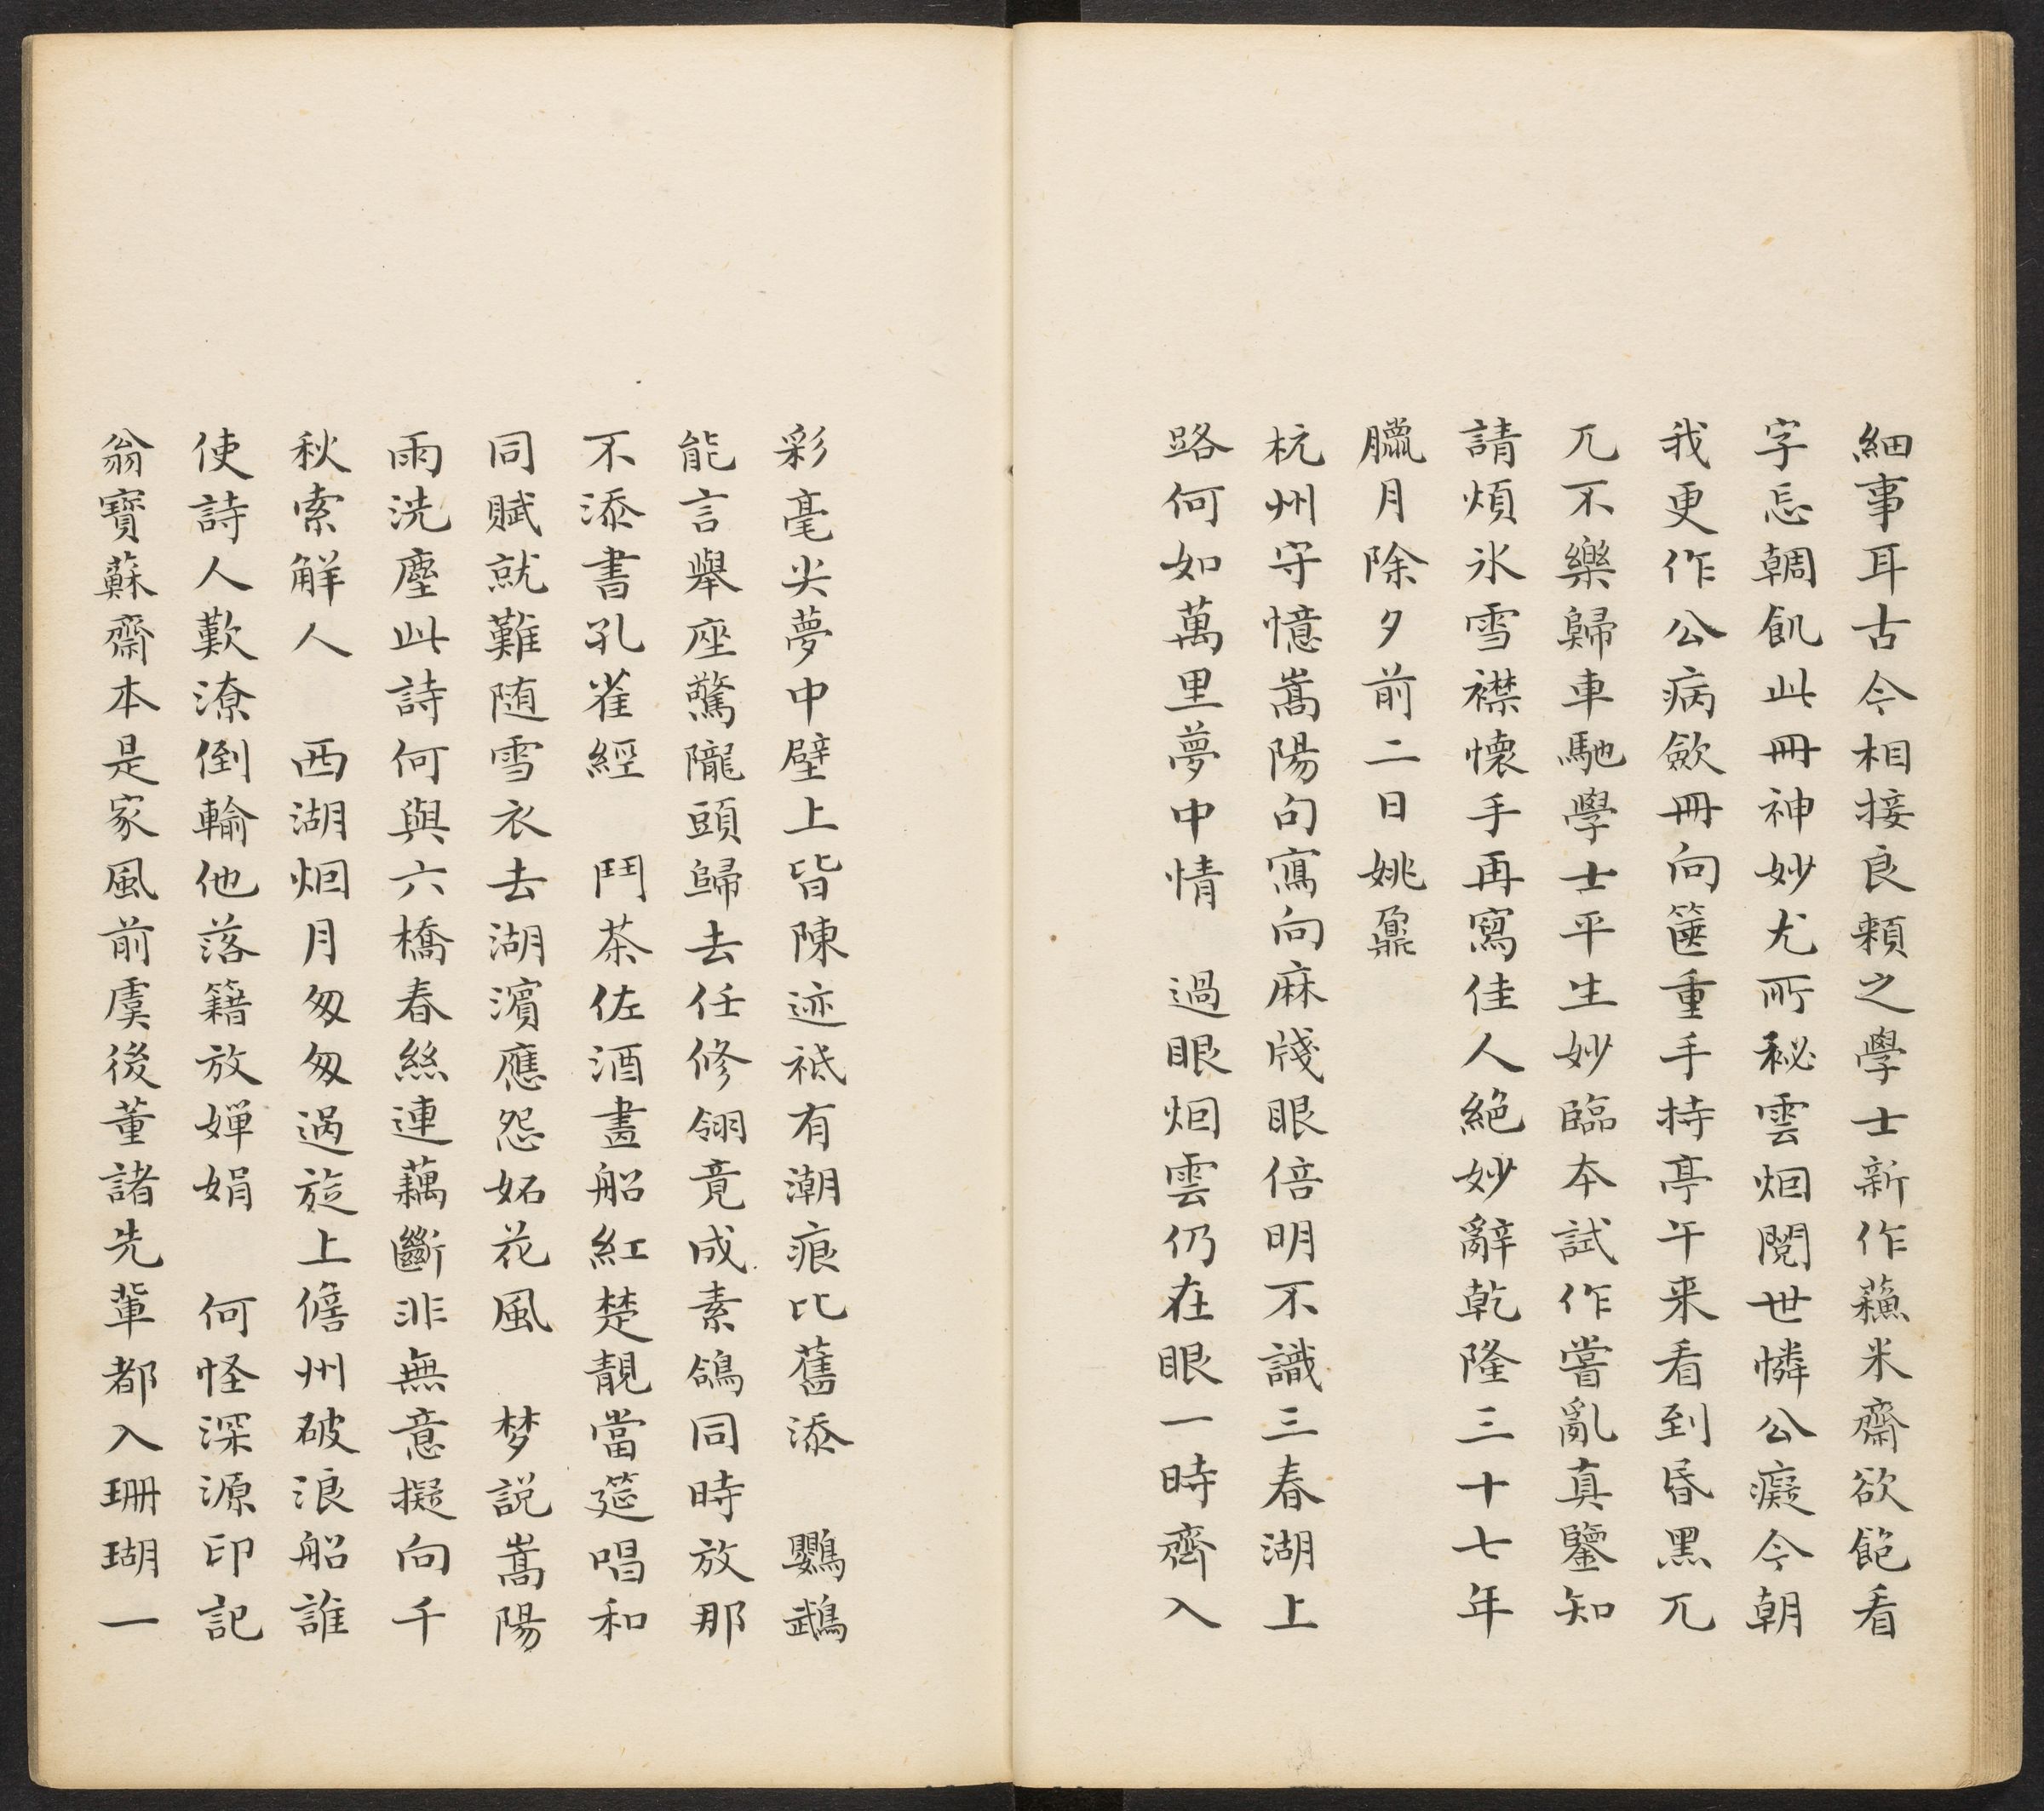 細事耳古今相接良頼之學士新作蘓米齋欲飽看
字忘朝飢此冊神妙尤所秘雲烟閱世憐公癡今朝
我更作公病歛冊向篋重手持亭午来看到昏黑兀
兀不樂歸車馳學士平生妙臨本試作嘗亂真鑒知
請煩氷雪襟懷手再寫佳人絕妙辭乾隆三十七年
臘月除夕前二日姚鼐
杭州守憶嵩陽句寫向麻牋眼倍明不識三春湖上
路何如萬里夢中情　過眼烟雲仍在眼一時齊入
彩毫尖夢中壁上皆陳迹祗有潮痕比舊添　鸚鵡
能言舉座驚隴頭歸去任修翎竟成素鴿同時放那
不添書孔雀經　鬥茶佐酒畫船紅楚靚當筵唱和
同賦就難随雪衣去湖濱應怨妬花風　梦説嵩陽
雨洗塵此詩何與六橋春絲連藕斷非無意擬向千
秋索解人　西湖烟月匆匆過旋上儋州破浪船誰
使詩人歎潦倒輸他落籍放嬋娟　何怪深源印記
翁寶蘇齋本是家風前虞後董諸先輩都入珊瑚一